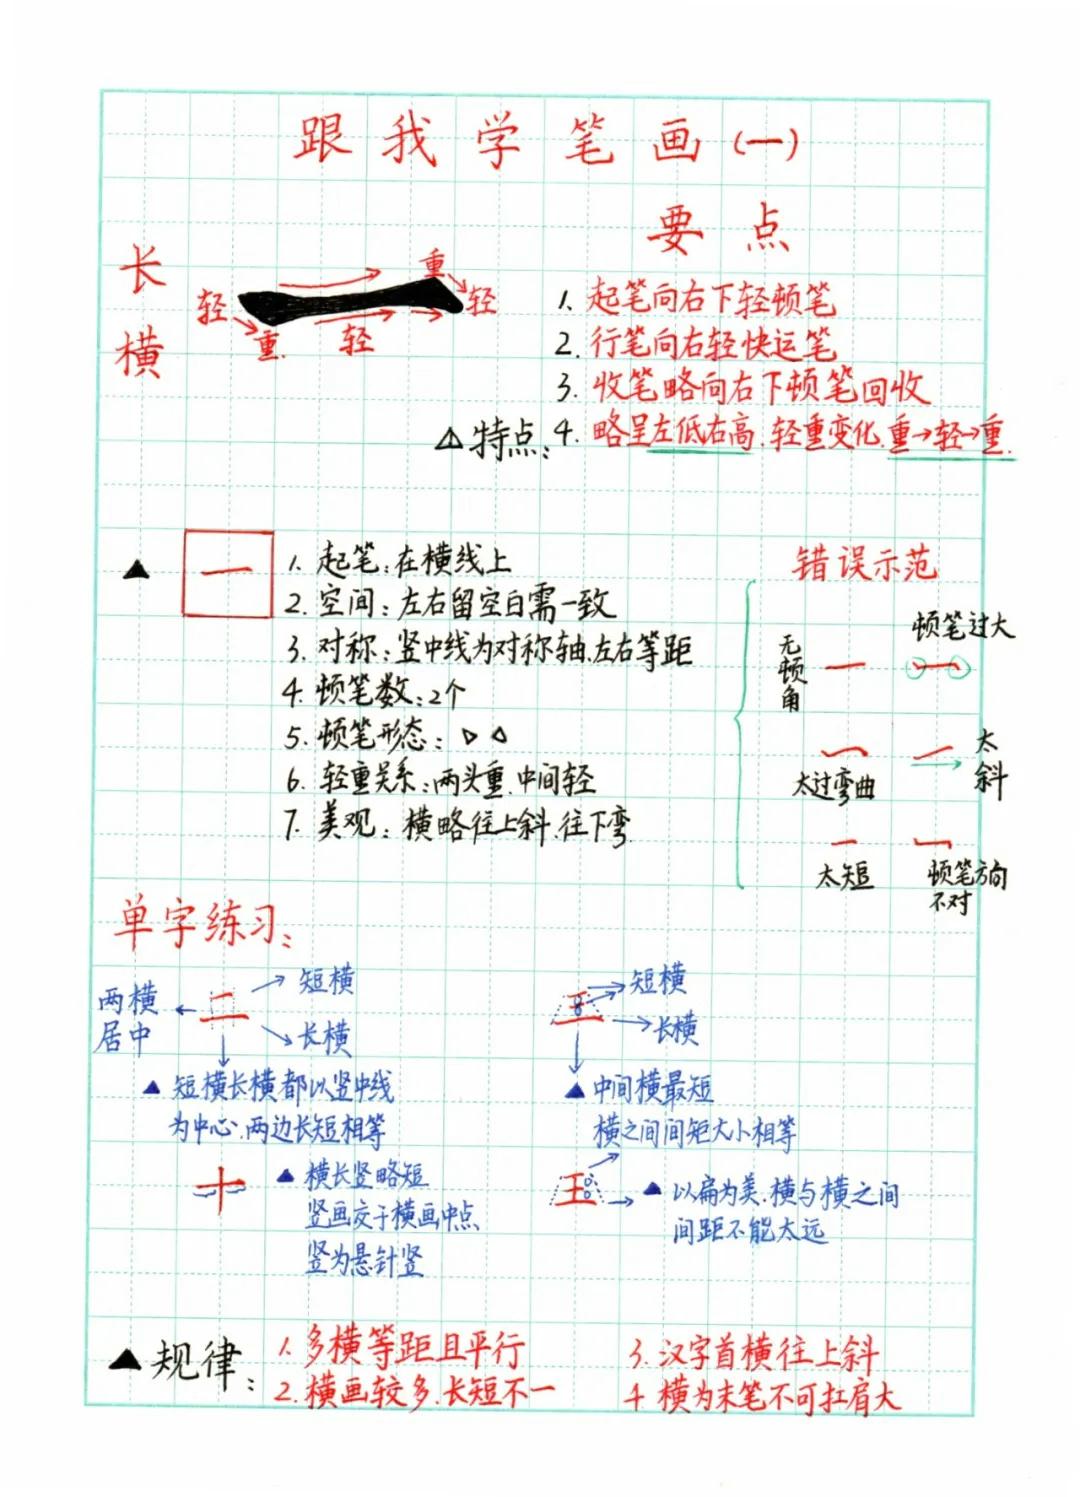 跟我学笔画(一)
要点
长横
轻
重
轻
重
轻
1. 起笔向右下轻顿笔
2. 行笔向右轻快运笔
3. 收笔略向右下顿笔回收
特点: 4. 略呈左低右高.轻重变化.重→轻→重.
▲ 一
1. 起笔:在横线上
2. 空间:左右留空白需一致
3. 对称:竖中线为对称轴.左右等距
4. 顿笔数:2个
5. 顿笔形态:
6. 轻重关系:两头重.中间轻
7. 美观:横略往上斜.往下弯.
错误示范
无顿角
顿笔过大
太过弯曲
太斜
太短
顿笔方向
不对
单字练习:
两横
居中
二
短横
长横
▲ 短横长横都以竖中线
为中心.两边长短相等
三
短横
长横
▲ 中间横最短
横之间间矩大小相等
十
▲ 横长竖略短
竖画交于横画中点
竖为悬针竖
王
▲ 以扁为美.横与横之间
间距不能太远
▲ 规律:
1. 多横等距且平行
2. 横画较多.长短不一
3. 汉字首横往上斜
4 横为末笔不可扛肩大